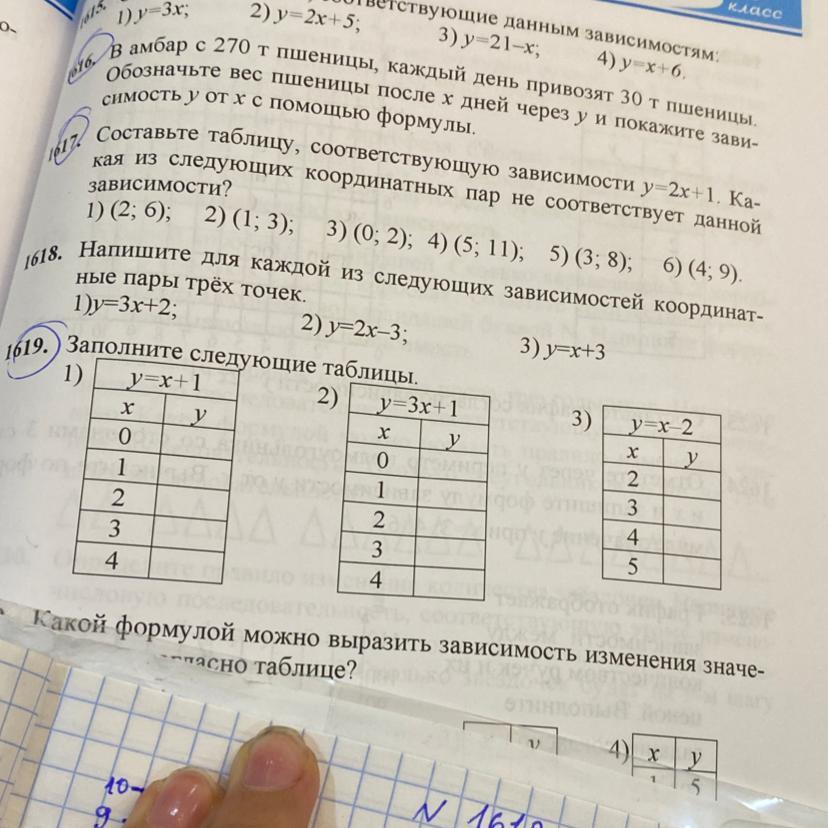 класс
ответствующие данным зависимостям:
1615. 1) y=3x; 2) y=2x+5; 3) y=21–x; 4) y=x+6.
1616. В амбар с 270 т пшеницы, каждый день привозят 30 т пшеницы.
Обозначьте вес пшеницы после x дней через y и покажите зави-
симость y от x с помощью формулы.
1617. Составьте таблицу, соответствующую зависимости y=2x+1. Ка-
кая из следующих координатных пар не соответствует данной
зависимости?
1) (2; 6); 2) (1; 3); 3) (0; 2); 4) (5; 11); 5) (3; 8); 6) (4; 9).
1618. Напишите для каждой из следующих зависимостей координат-
ные пары трёх точек.
1)y=3x+2; 2) y=2x–3; 3) y=x+3
1619. Заполните следующие таблицы.
1) 2) 3)
y=x+1 y=3x+1 y=x–2
x y x y x y
0 0 2
1 1 3
2 2 4
3 3 5
4 4
Какой формулой можно выразить зависимость изменения значе-
гласно таблице?
y 4) x y
1 5
10-
9-
N 1619